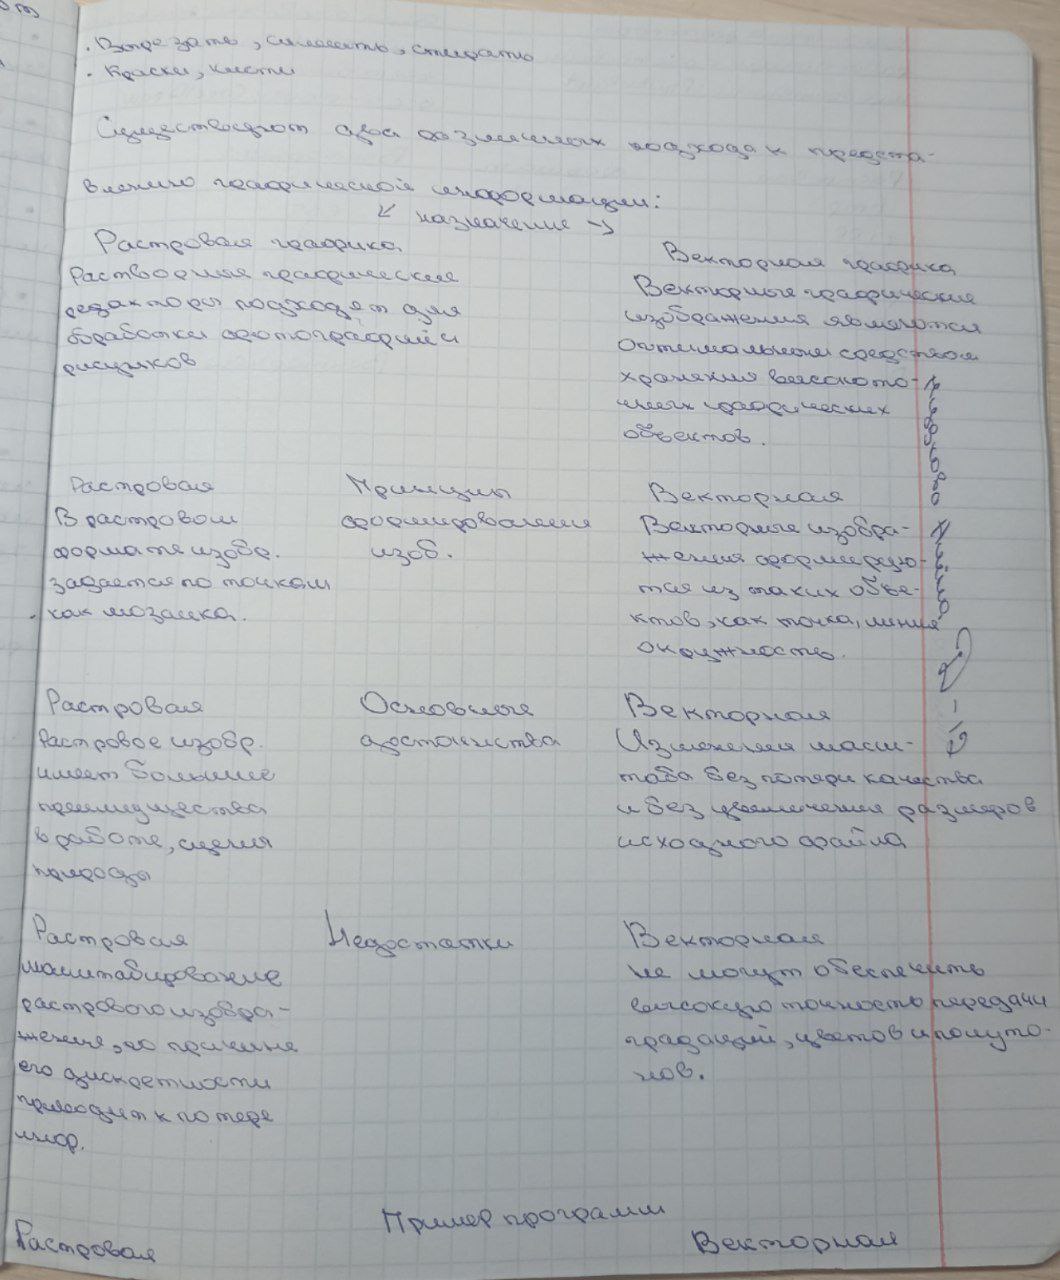 · Вырезать, склеить, стирать
· Краски, кисти
Существуют два различных подхода к предста-
влению графической информации:
↙ назначение →
Растровая графика
Растворные графические
редакторы подходят для
обработки фотографий и
рисунков
Векторная графика
Векторные графические
изображения являются
оптимальным средством
хранения высокото-
чных графических
объектов.
Растровая
В растровом
формате изобр.
задается по точкам
как мозаика.
Принципы
формирования
изоб.
Векторная
Векторные изобра-
жения формирую-
тся из таких объе-
ктов, как точка, линия
окружность.
Растровая
Растровое изобр.
имеет большие
преимущества
в работе, сцены
природы
Основные
достоинства
Векторная
Изменения масш-
таба без потери качества
и без увеличения размеров
исходного файла
Растровая
масштабирование
растрового изобра-
жения, по причине
его дискретности
приводит к потере
инфор.
Недостатки
Векторная
не могут обеспечить
высокую точность передачи
градаций, цветов и полуто-
нов.
Пример программ
Растровая
Векторная